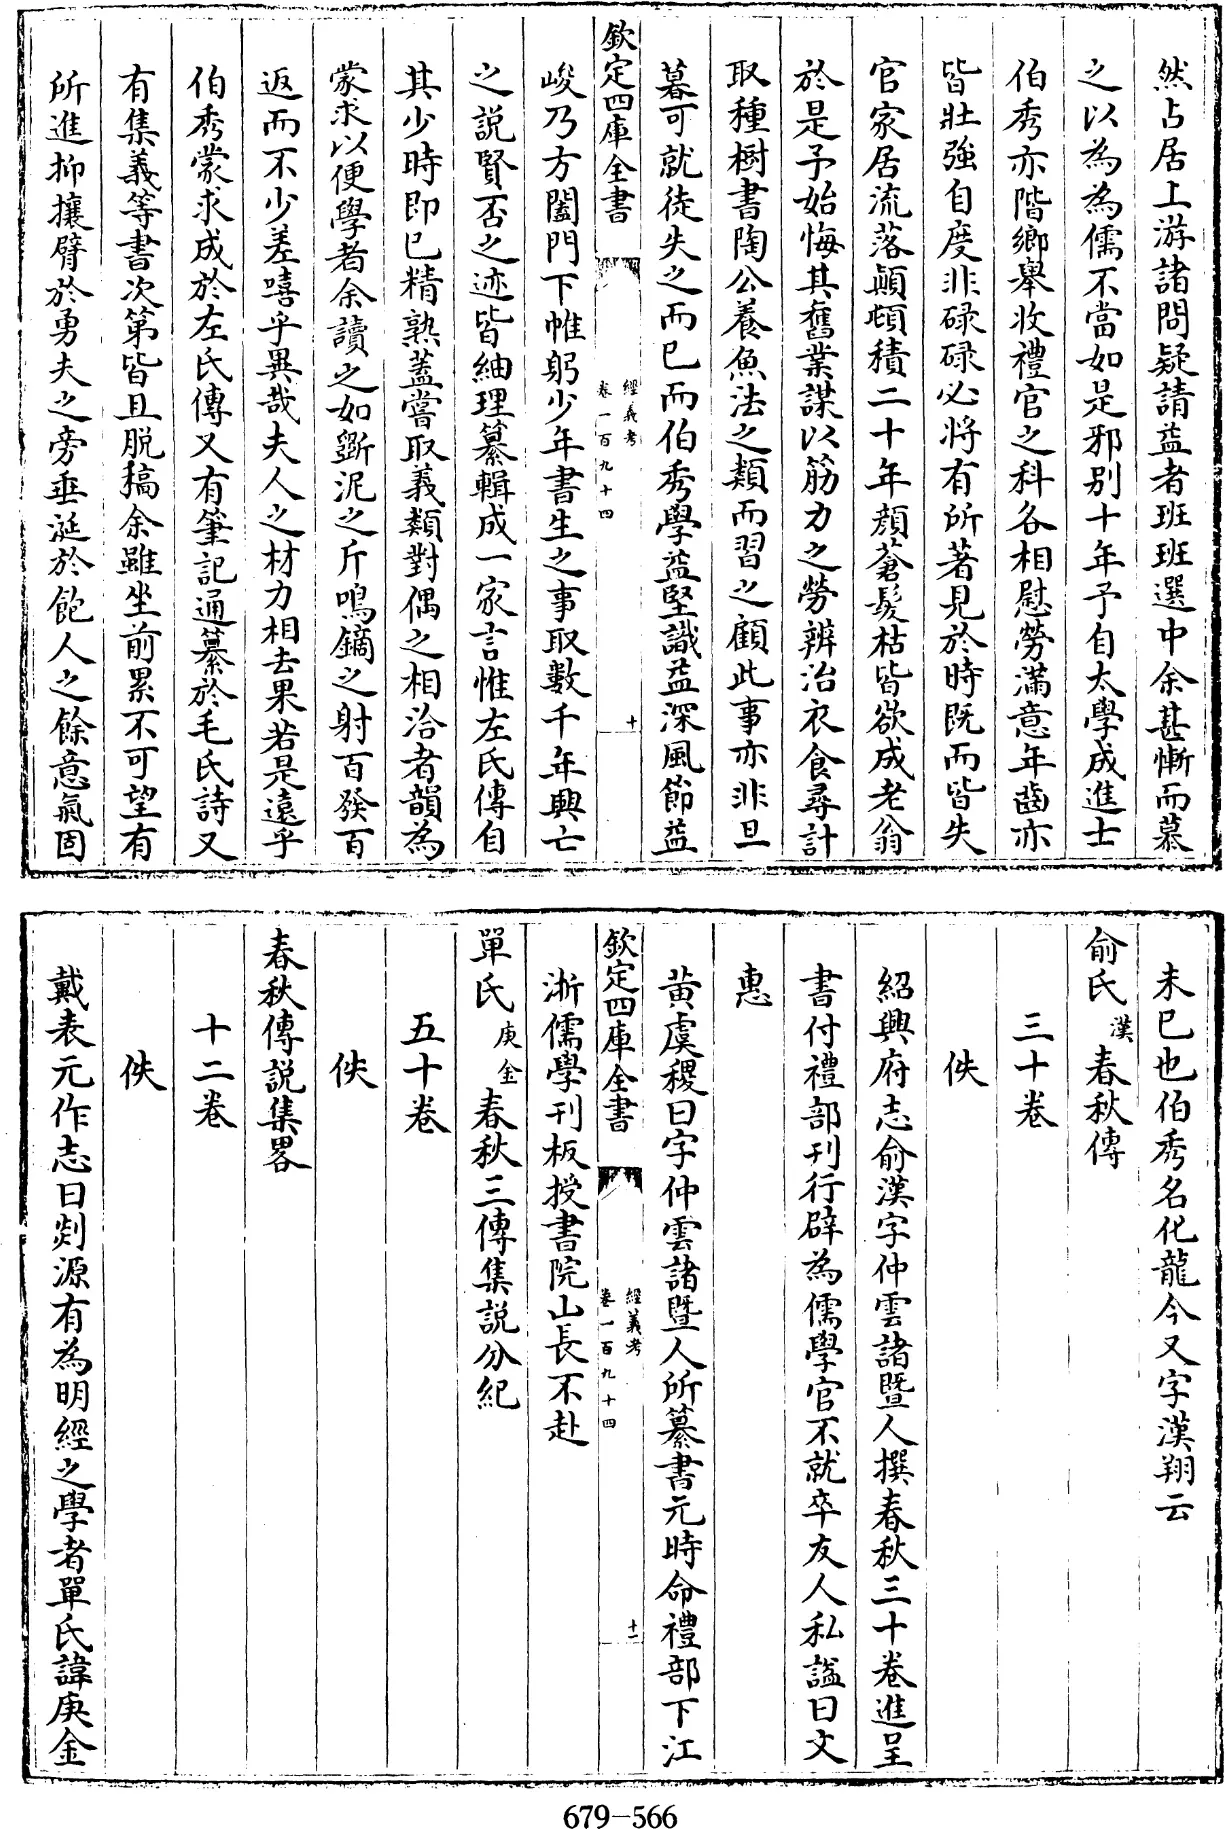 然占居上游諸問疑請益者班班選中余甚慚而慕
之以為為儒不當如是邪别十年予自太學成進士
伯秀亦階鄉舉收禮官之科各相慰勞滿意年齒亦
皆壯強自度非碌碌必将有所著見於時既而皆失
官家居流落顛頓積二十年顔蒼髮枯皆欲成老翁
於是予始悔其舊業謀以筋力之勞辨治衣食尋計
取種樹書陶公養魚法之類而習之顧此事亦非旦
暮可就徒失之而已而伯秀學益堅識益深風節益
欽定四庫全書
經義考
卷一百九十四
十
峻乃方闔門下帷躬少年書生之事取數千年興亡
之説賢否之迹皆紬理纂輯成一家言惟左氏傳自
其少時即已精熟蓋嘗取義類對偶之相洽者韻為
蒙求以便學者余讀之如斵泥之斤鳴鏑之射百發百
返而不少差嘻乎異哉夫人之材力相去果若是遠乎
伯秀蒙求成於左氏傳又有筆記通纂於毛氏詩又
有集義等書次第皆且脱稿余雖坐前累不可望有
所進抑攘臂於勇夫之旁垂涎於飽人之餘意氣固
未已也伯秀名化龍今又字漢翔云
俞氏漢春秋傳
三十卷
佚
紹興府志俞漢字仲雲諸暨人撰春秋三十卷進呈
書付禮部刊行辟為儒學官不就卒友人私謚曰文
惠
黄虞稷曰字仲雲諸暨人所纂書元時命禮部下江
欽定四庫全書
經義考
卷一百九十四
十一
浙儒學刊板授書院山長不赴
單氏庚金春秋三傳集説分紀
五十卷
佚
春秋傳説集畧
十二卷
佚
戴表元作志曰剡源有為明經之學者單氏諱庚金
679-566